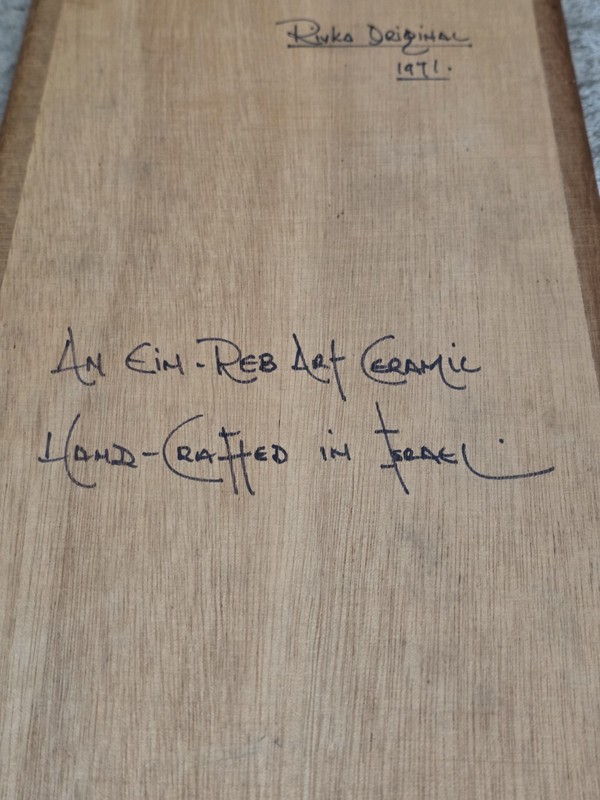 Rivka Original
1971.
An Ein-Reb Art Ceramic
Hand-Crafted in Israel.